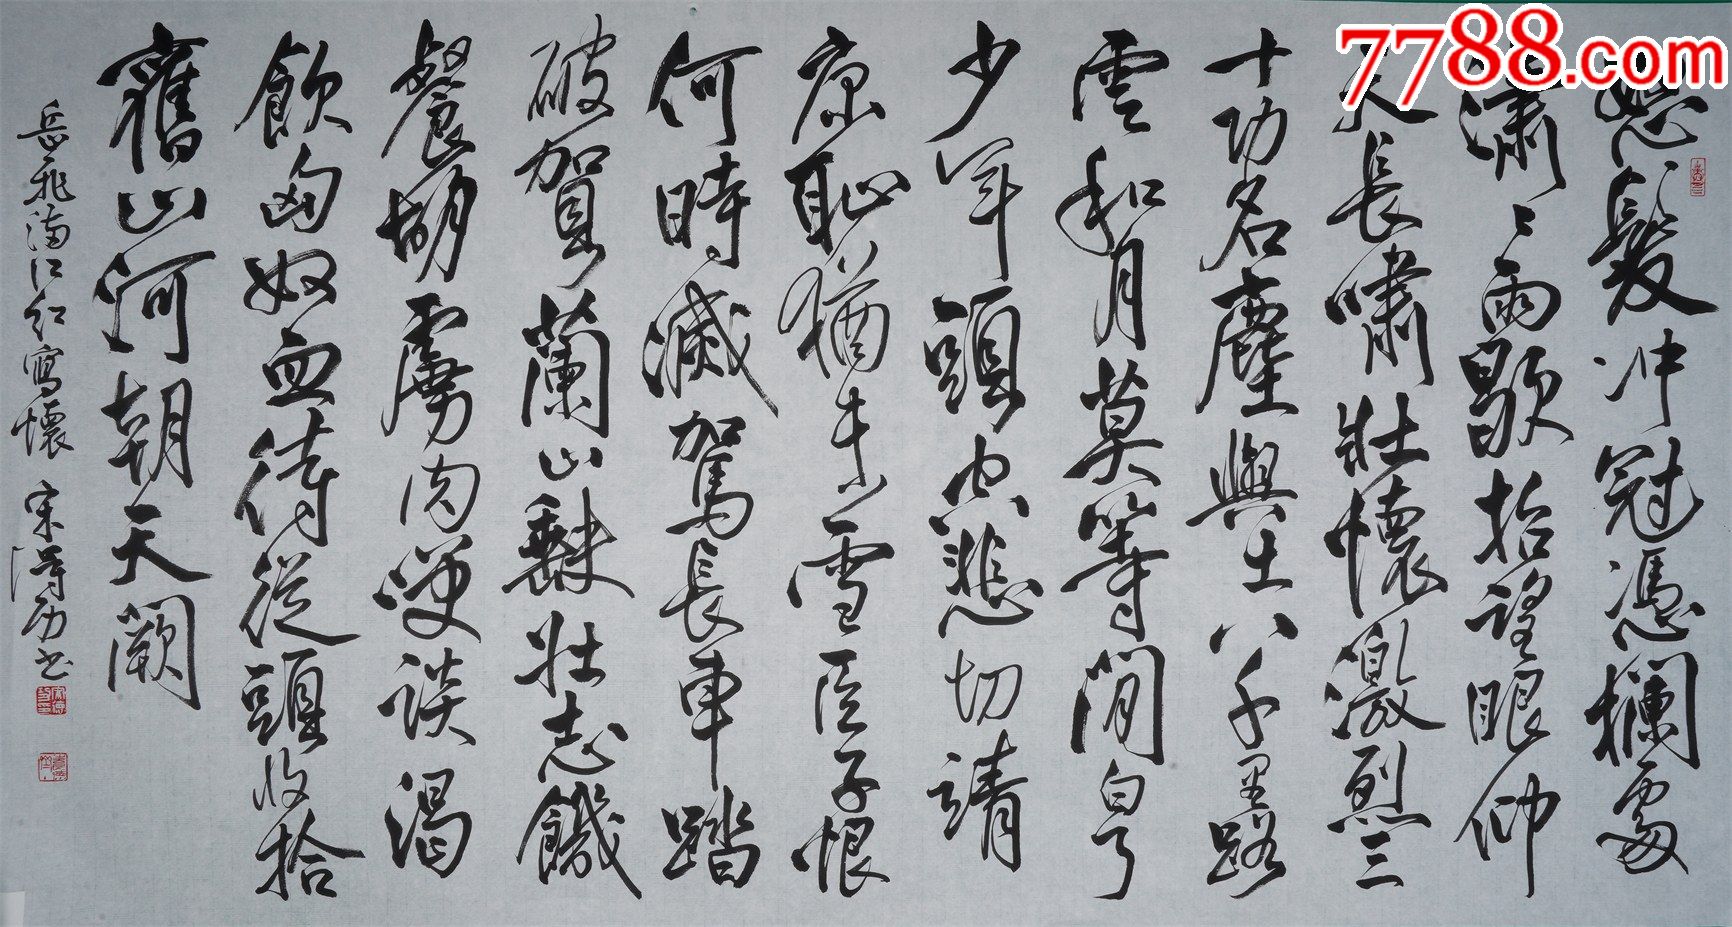 7788.com
怒髮冲冠憑欄處
瀟〻雨歇抬望眼仰
天長嘯壯懷激烈三
十功名塵與土八千里路
雲和月莫等閒白了
少年頭空悲切靖
康恥猶未雪臣子恨
何時滅駕長車踏
破賀蘭山缺壯志饑
餐胡虜肉笑談渴
飲匈奴血待從頭收拾
舊山河朝天闕
岳飛滿江紅寫懷 宋 书